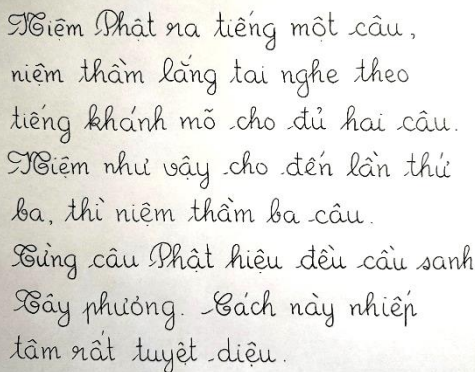 Niệm Phật ra tiếng một câu,
niệm thầm lắng tai nghe theo
tiếng khánh mõ cho đủ hai câu.
Niệm như vậy cho đến lần thứ
ba, thì niệm thầm ba câu.
Từng câu Phật hiệu đều cầu sanh
Tây phương. Cách này nhiếp
tâm rất tuyệt diệu.